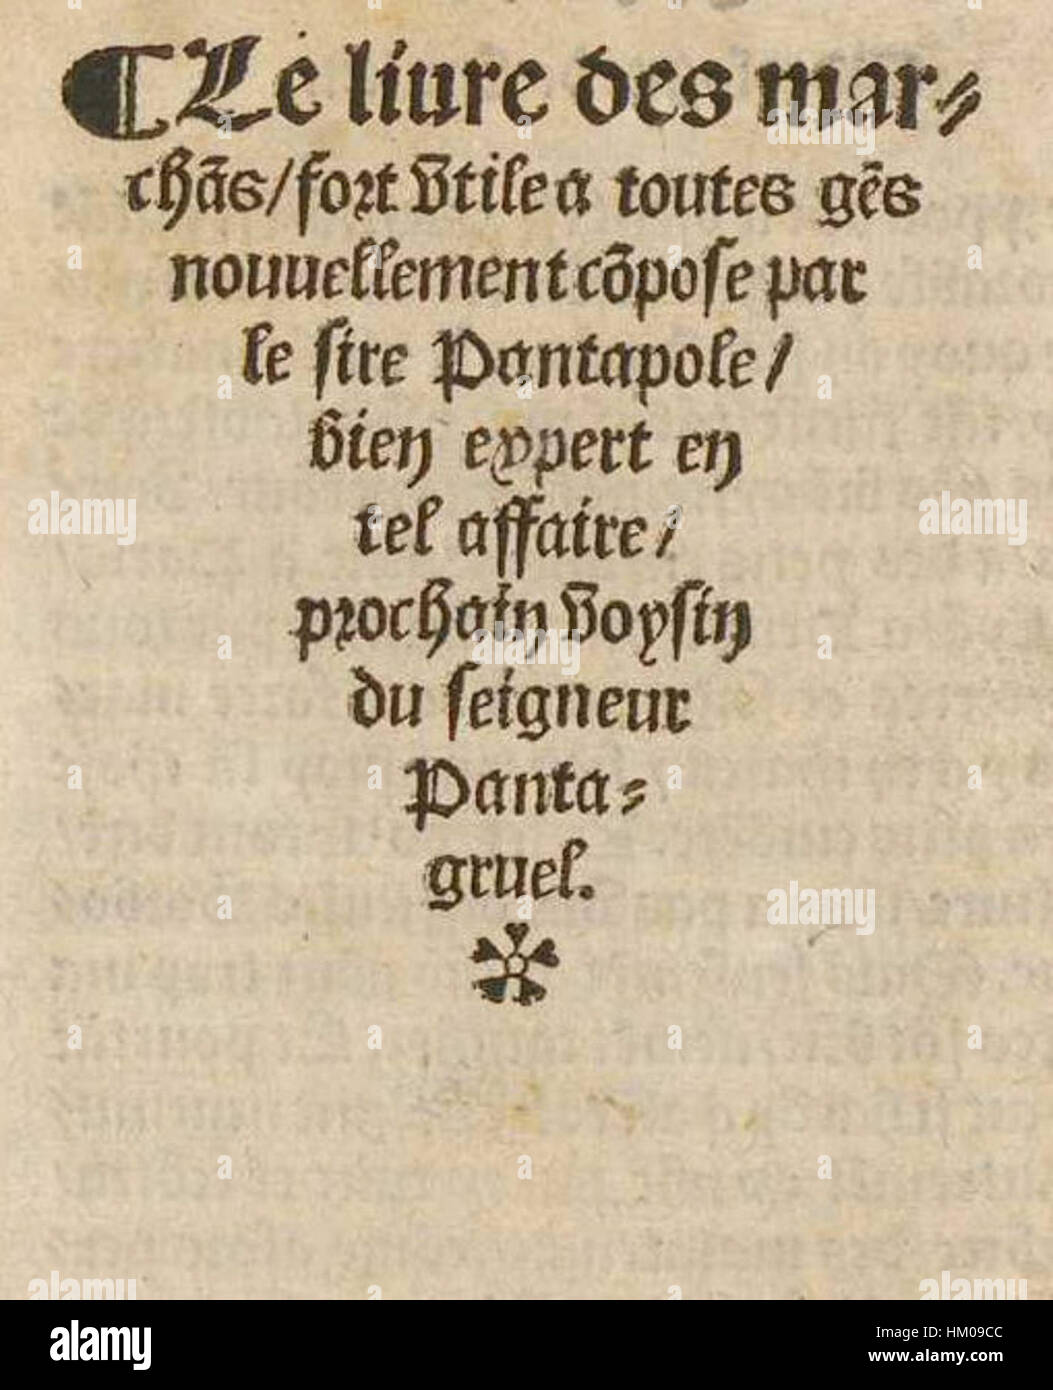 ¶Le liure des mar⸗
chãs/fort vtile a toutes gẽs
nouuellement cõpose par
le sire Pantapole/
bien expert en
tel affaire/
prochain voysin
du seigneur
Panta⸗
gruel.
alamy
Image ID: HM09CC
www.alamy.com